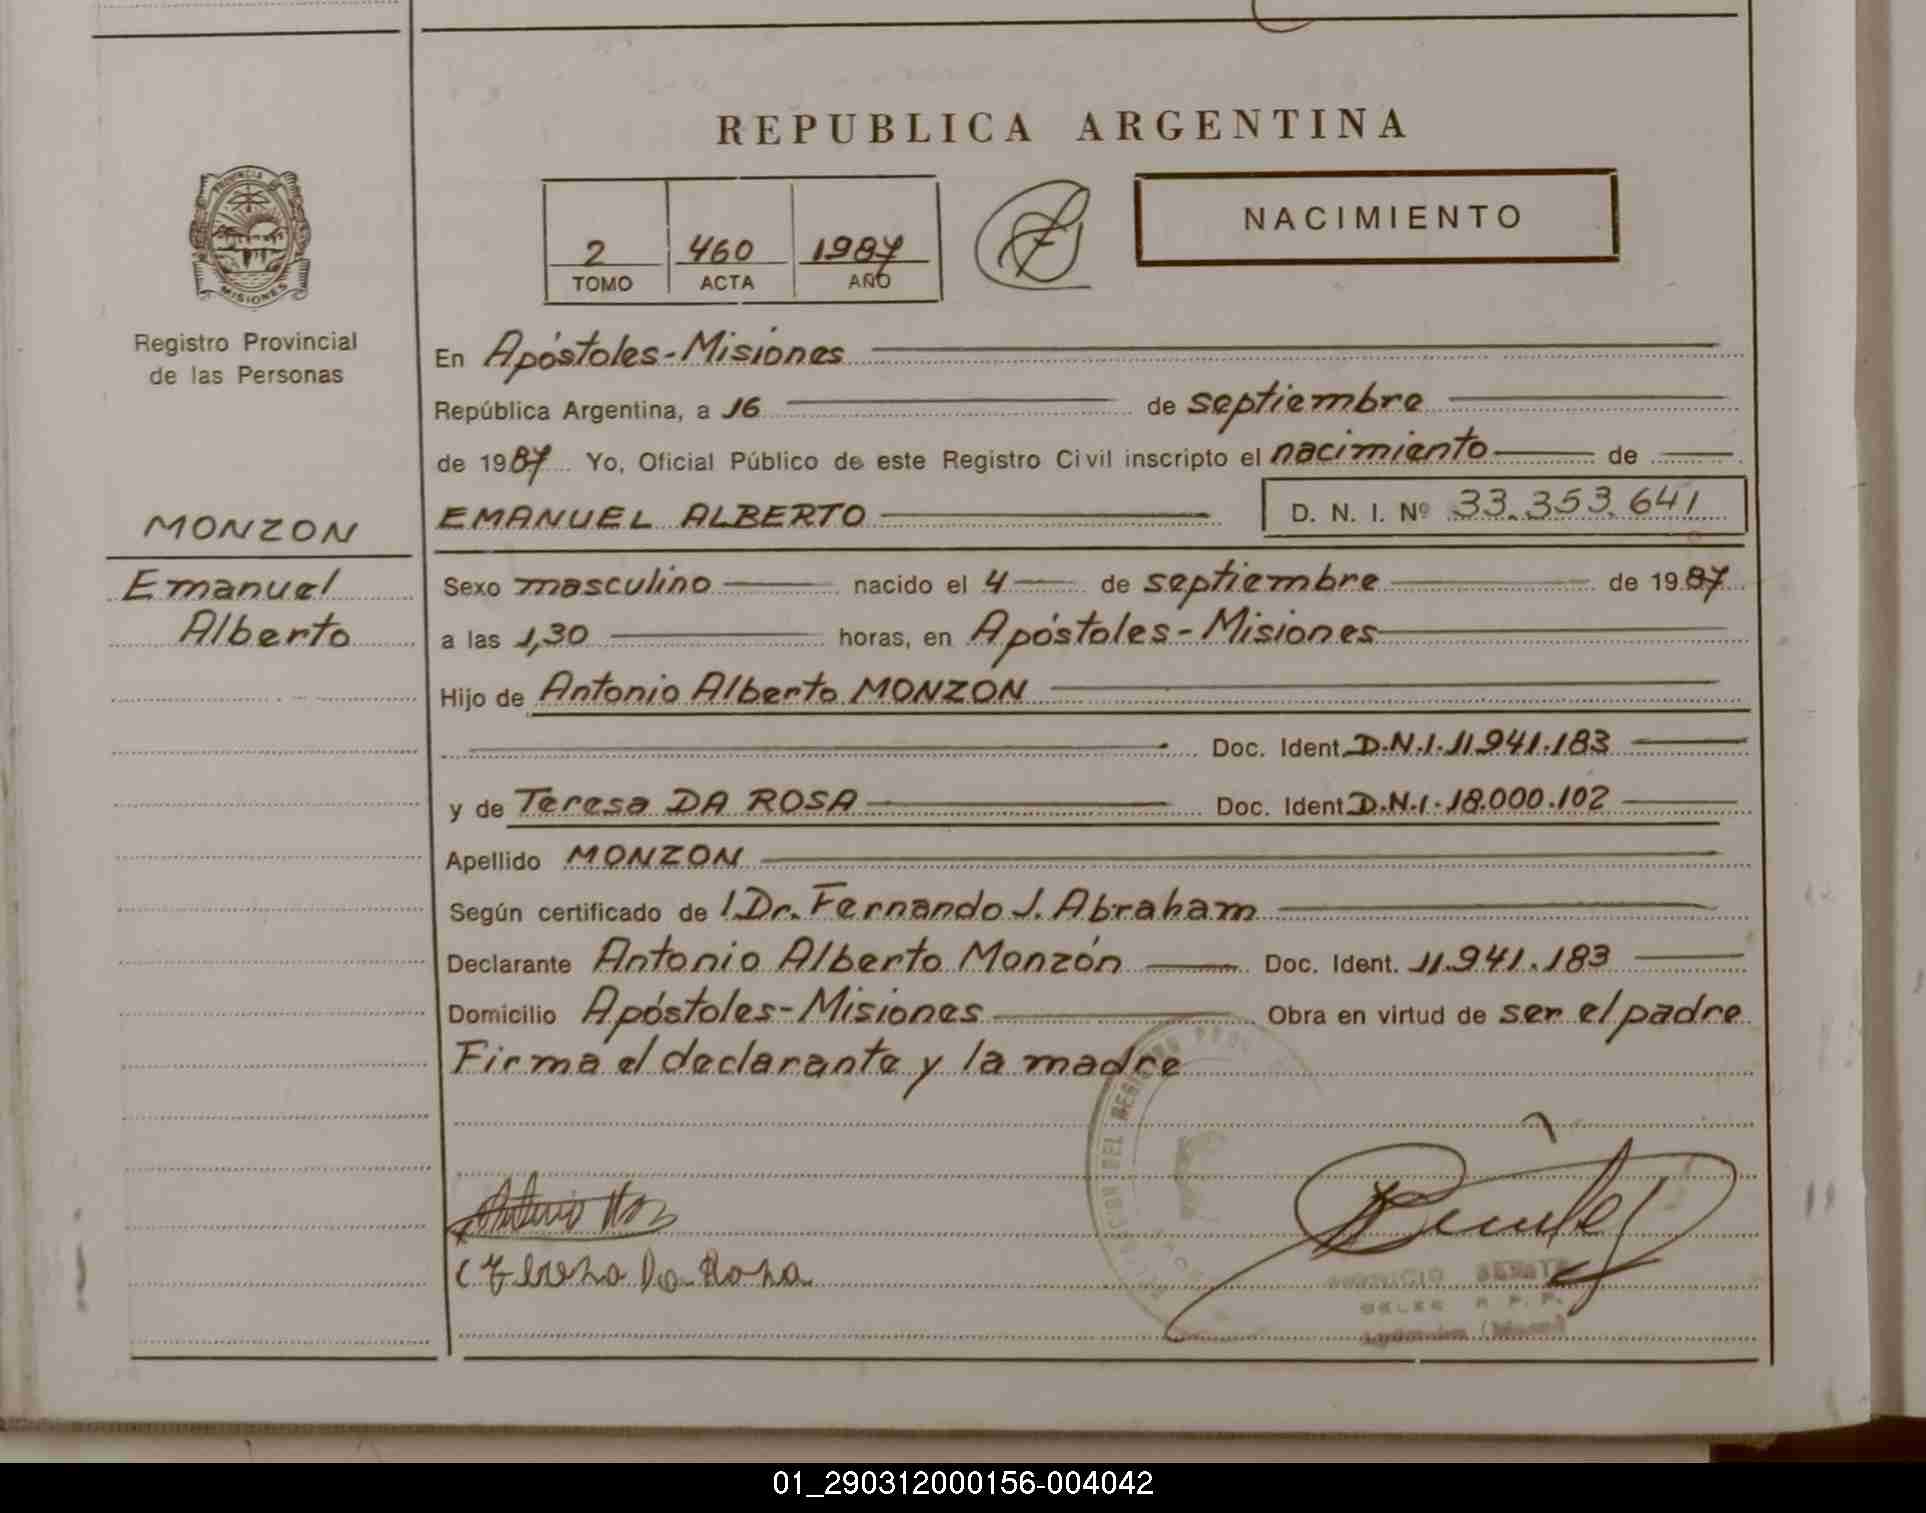 REPUBLICA ARGENTINA
PROVINCIA DE
MISIONES
2 460 1987
TOMO ACTA AÑO
NACIMIENTO
Registro Provincial
de las Personas
En Apóstoles-Misiones
República Argentina, a 16 de septiembre
de 1987 Yo, Oficial Público de este Registro Civil inscripto el nacimiento de
MONZON
EMANUEL ALBERTO D. N. I. Nº 33.353.641
Emanuel
Alberto
Sexo masculino nacido el 4 de septiembre de 1987
a las 1,30 horas, en Apóstoles-Misiones
Hijo de Antonio Alberto MONZON
Doc. Ident. D.N.I. 11.941.183
y de Teresa DA ROSA Doc. Ident. D.N.I. 18.000.102
Apellido MONZON
Según certificado de l Dr. Fernando J. Abraham
Declarante Antonio Alberto Monzón Doc. Ident. 11.941.183
Domicilio Apóstoles-Misiones Obra en virtud de ser el padre
Firma el declarante y la madre
Antonio
Da Roza
01_290312000156-004042